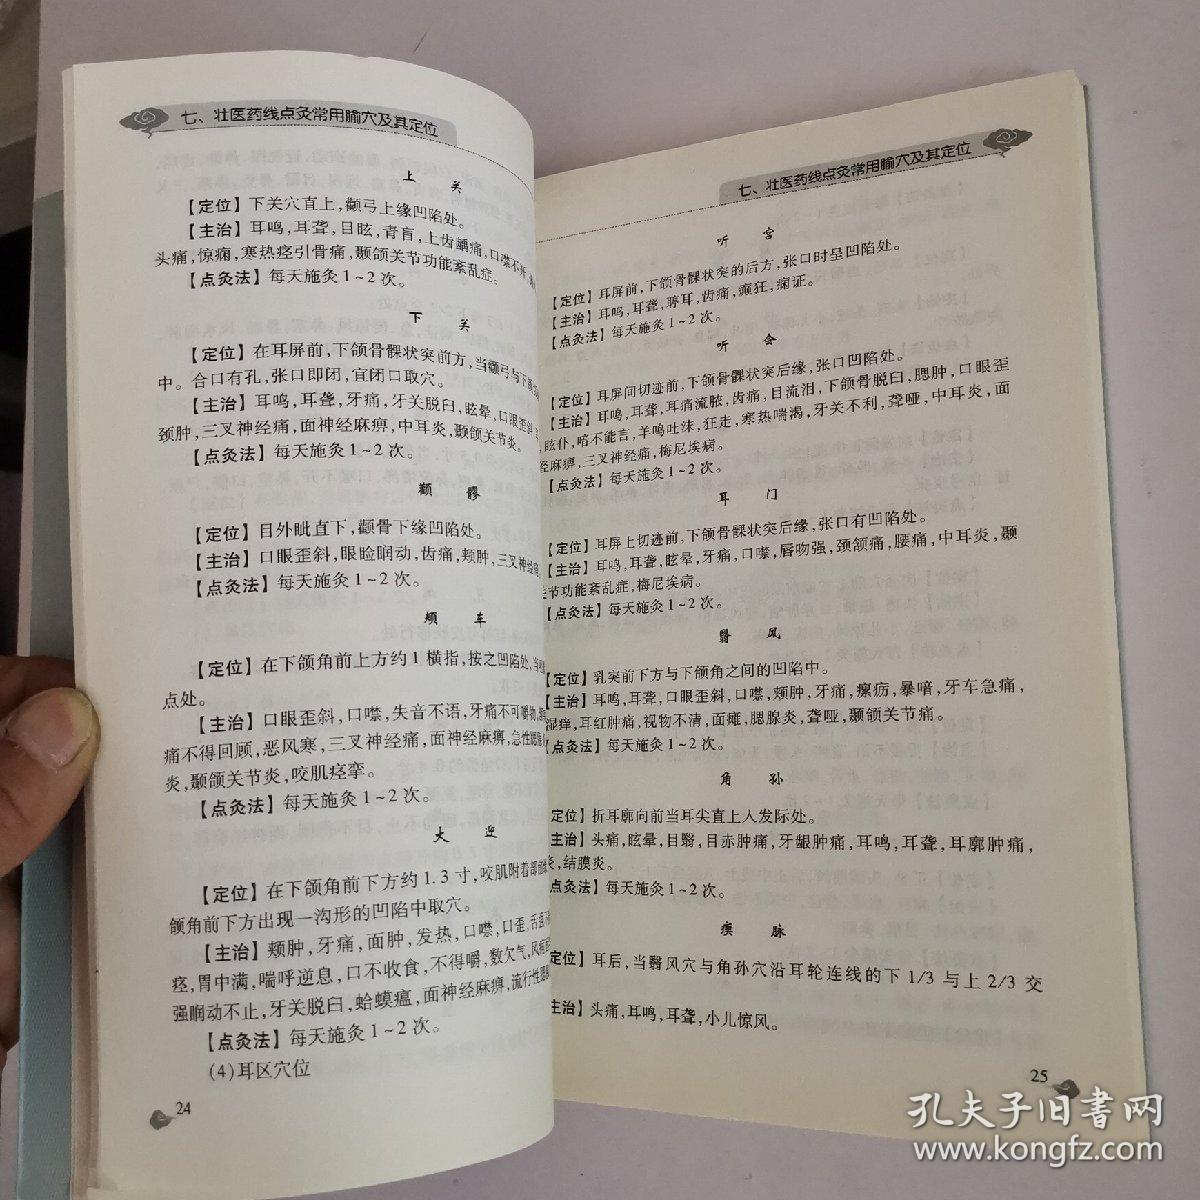 七、壮医药线点灸常用腧穴及其定位
上 关
【定位】下关穴直上,颧弓上缘凹陷处。
【主治】耳鸣,耳聋,目眩,青盲,上齿龋痛,口噤不开
头痛,惊痫,寒热痉引骨痛,颞颌关节功能紊乱症。
【点灸法】每天施灸1~2次。
下 关
【定位】在耳屏前,下颌骨髁状突前方,当颧弓与下颌
中。合口有孔,张口即闭,宜闭口取穴。
【主治】耳鸣,耳聋,牙痛,牙关脱臼,眩晕,口眼歪斜
颈肿,三叉神经痛,面神经麻痹,中耳炎,颞颌关节炎。
【点灸法】每天施灸1~2次。
颧 髎
【定位】目外眦直下,颧骨下缘凹陷处。
【主治】口眼歪斜,眼睑瞤动,齿痛,颊肿,三叉神经痛
【点灸法】每天施灸1~2次。
颊 车
【定位】在下颌角前上方约1横指,按之凹陷处,当
点处。
【主治】口眼歪斜,口噤,失音不语,牙痛不可嚼物
痛不得回顾,恶风寒,三叉神经痛,面神经麻痹,急性腮
炎,颞颌关节炎,咬肌痉挛。
【点灸法】每天施灸1~2次。
大 迎
【定位】在下颌角前下方约1.3寸,咬肌附着部
颌角前下方出现一沟形的凹陷中取穴。
【主治】颊肿,牙痛,面肿,发热,口噤,口歪,舌强
痉,胃中满,喘呼逆息,口不收食,不得嚼,数欠气,风
强瞤动不止,牙关脱臼,蛤蟆瘟,面神经麻痹,流行性腮
【点灸法】每天施灸1~2次。
(4)耳区穴位
24
七、壮医药线点灸常用腧穴及其定位
听 宫
【定位】耳屏前,下颌骨髁状突的后方,张口时呈凹陷处。
【主治】耳鸣,耳聋,聤耳,齿痛,癫狂,痫证。
【点灸法】每天施灸1~2次。
听 会
【定位】耳屏间切迹前,下颌骨髁状突后缘,张口凹陷处。
【主治】耳鸣,耳聋,耳痛流脓,齿痛,目流泪,下颌骨脱臼,腮肿,口眼歪
,眩仆,喑不能言,羊鸣吐沫,狂走,寒热喘渴,牙关不利,聋哑,中耳炎,面
经麻痹,三叉神经痛,梅尼埃病。
【点灸法】每天施灸1~2次。
耳 门
【定位】耳屏上切迹前,下颌骨髁状突后缘,张口有凹陷处。
【主治】耳鸣,耳聋,眩晕,牙痛,口噤,唇吻强,颈颔痛,腰痛,中耳炎,颞
关节功能紊乱症,梅尼埃病。
【点灸法】每天施灸1~2次。
翳 风
【定位】乳突前下方与下颌角之间的凹陷中。
【主治】耳鸣,耳聋,口眼歪斜,口噤,颊肿,牙痛,瘰疬,暴喑,牙车急痛,
湿痒,耳红肿痛,视物不清,面瘫,腮腺炎,聋哑,颞颌关节痛。
【点灸法】每天施灸1~2次。
角 孙
定位】折耳廓向前当耳尖直上入发际处。
主治】头痛,眩晕,目翳,目赤肿痛,牙龈肿痛,耳鸣,耳聋,耳廓肿痛,
炎,结膜炎。
点灸法】每天施灸1~2次。
瘈 脉
定位】耳后,当翳风穴与角孙穴沿耳轮连线的下1/3与上2/3交
主治】头痛,耳鸣,耳聋,小儿惊风。
25
孔夫子旧书网
www.kongfz.com